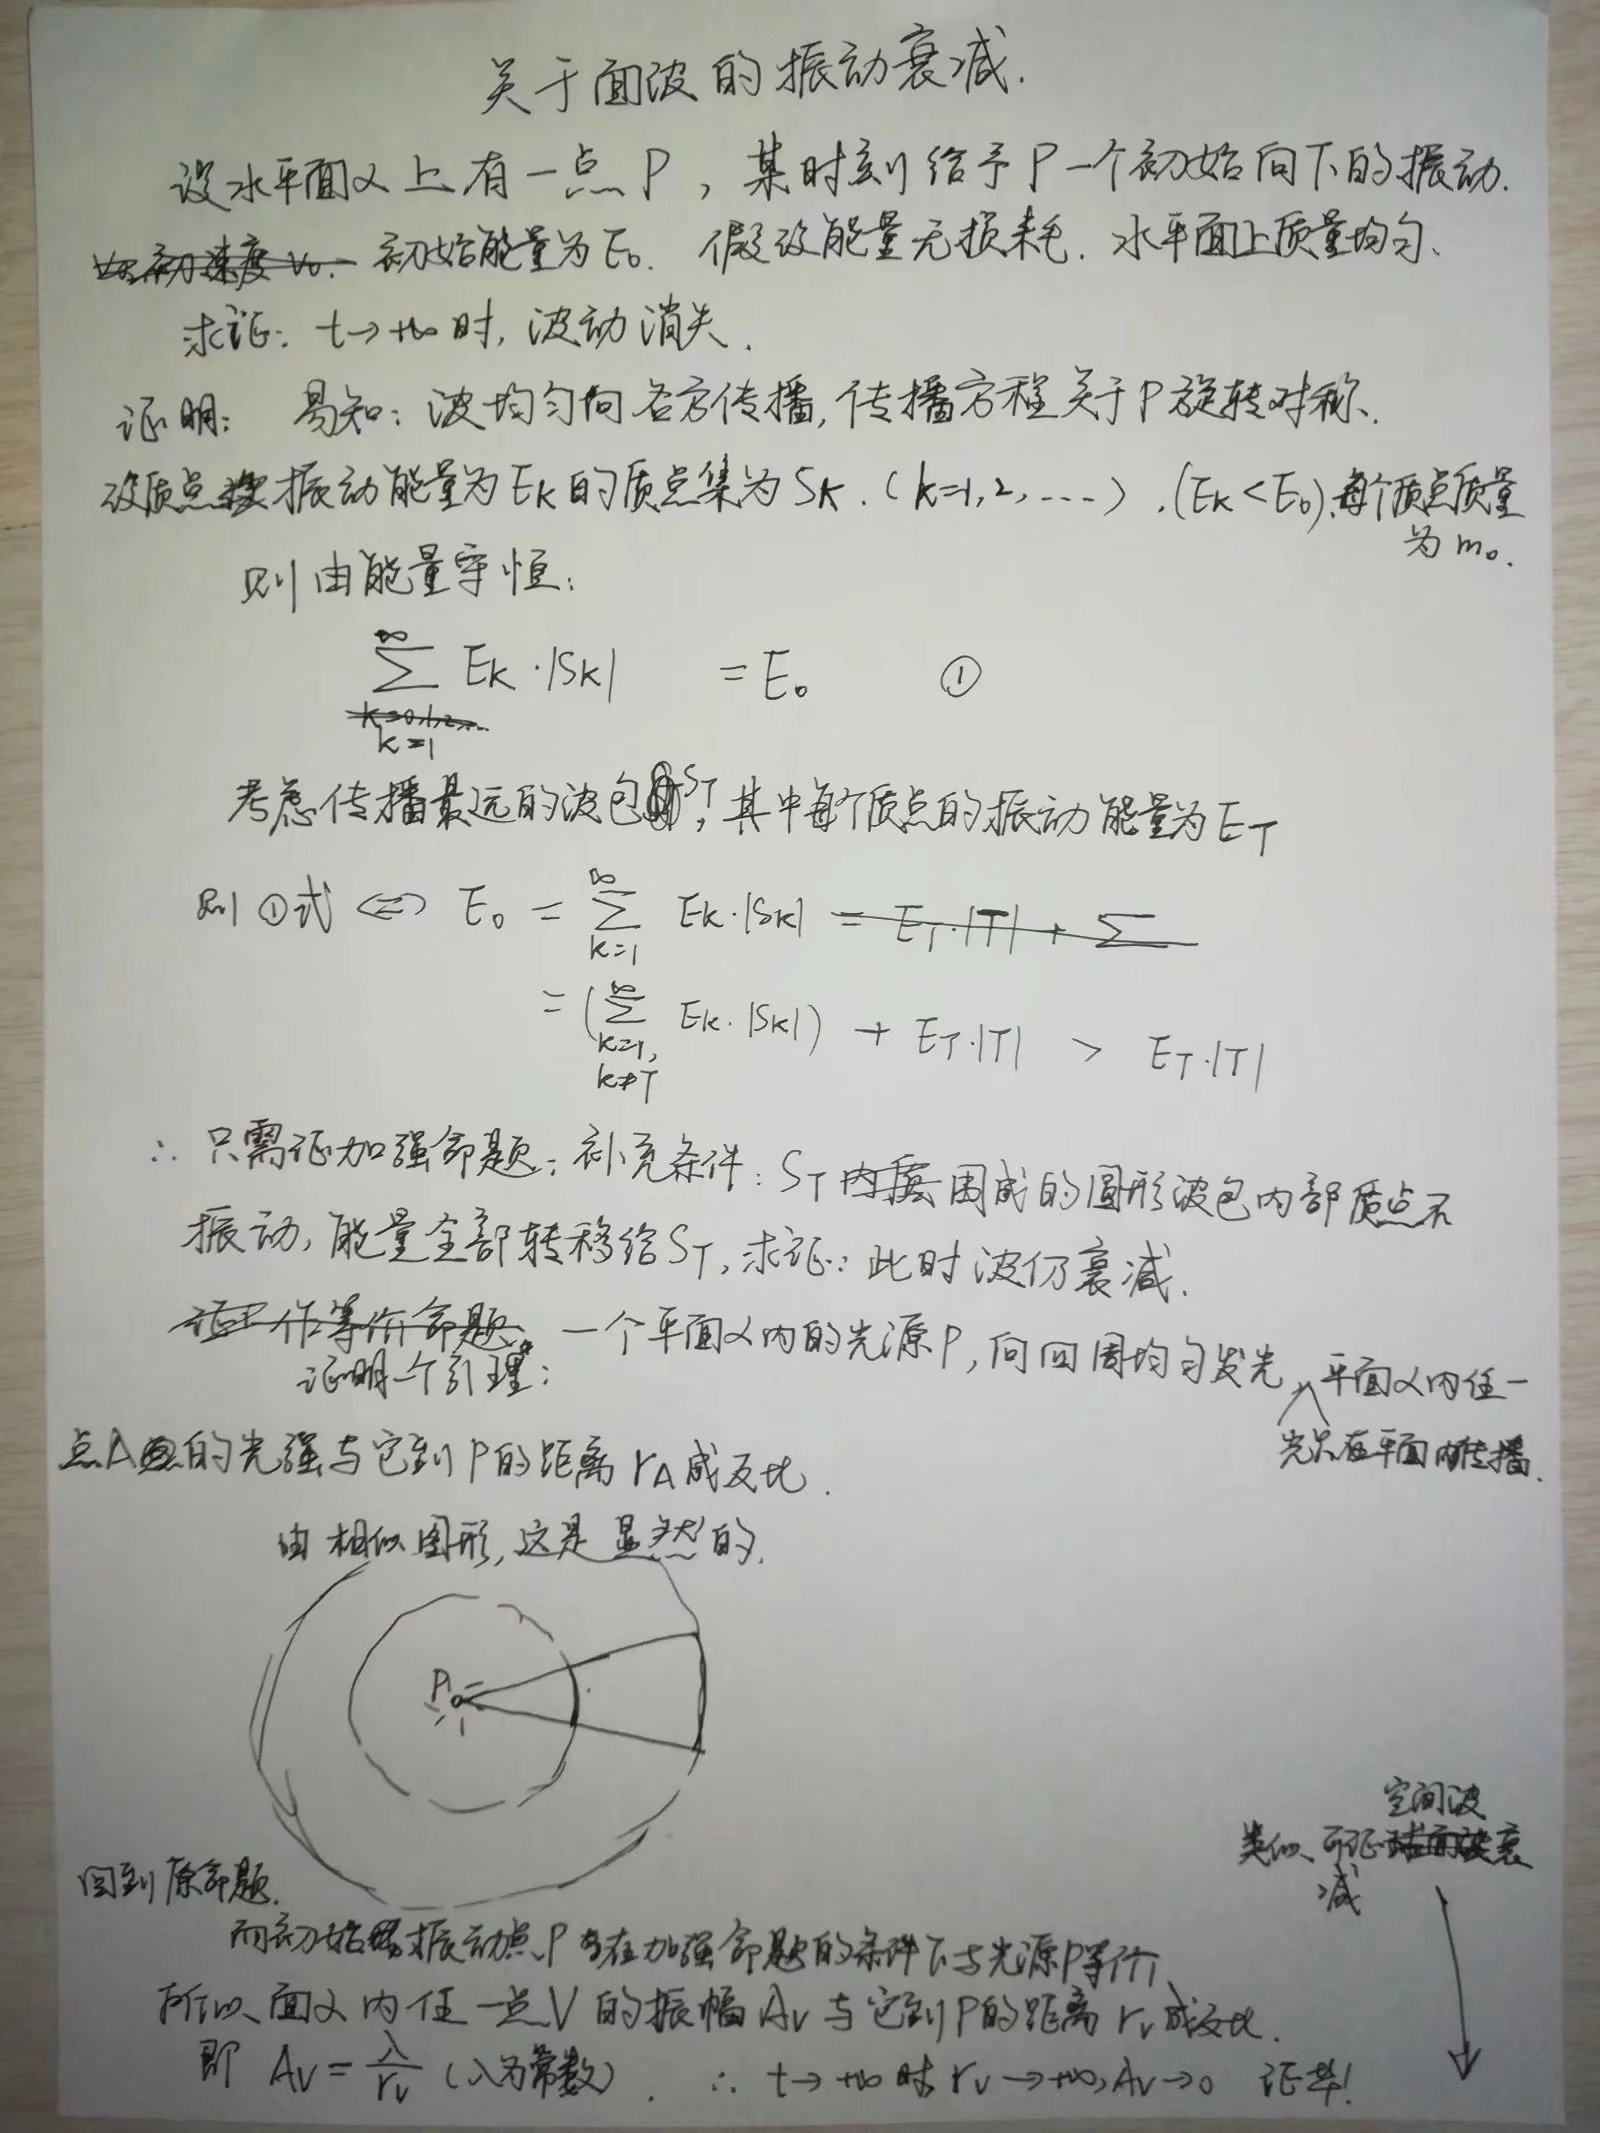 关于面波的振动衰减.
设水平面α上有一点P,某时刻给予P一个初始向下的振动.
初速度v₀. 初始能量为E₀. 假设能量无损耗. 水平面上质量均匀.
求证: t→+∞时, 波动消失.
证明: 易知: 波均匀向各方传播, 传播方程关于P旋转对称.
设质点振动能量为Eₖ的质点集为Sₖ. (k=1,2,…). (Eₖ<E₀). 每个质点质量
为m₀.
则由能量守恒:
∞
∑ Eₖ·|Sₖ| = E₀ ①
k=0,1,2,…
k=1
考虑传播最远的波包S_T, 其中每个质点的振动能量为E_T
则①式 ⇔ E₀ = ∑_{k=1}^{∞} Eₖ·|Sₖ| = E_T·|T| + ∑
= (∑_{k=1, k≠T}^{∞} Eₖ·|Sₖ|) + E_T·|T| > E_T·|T|
∴ 只需证加强命题: 补充条件: S_T内围成的圆形波包内部质点不
振动, 能量全部转移给S_T, 求证: 此时波仍衰减.
作等价命题. 一个平面α内的光源P, 向四周均匀发光 平面α内任一
证明一个引理:
点A的光强与它到P的距离r_A成反比.
光只在平面内传播.
由相似图形, 这是显然的.
P
空间波
类似, 可证球面波衰
减
回到原命题.
而初始振动点P在加强命题的条件下与光源P等价
所以面α内任一点V的振幅Aᵥ与它到P的距离rᵥ成反比.
即 Aᵥ = λ/rᵥ (λ为常数). ∴ t→+∞时 rᵥ→+∞, Aᵥ→0 证毕!